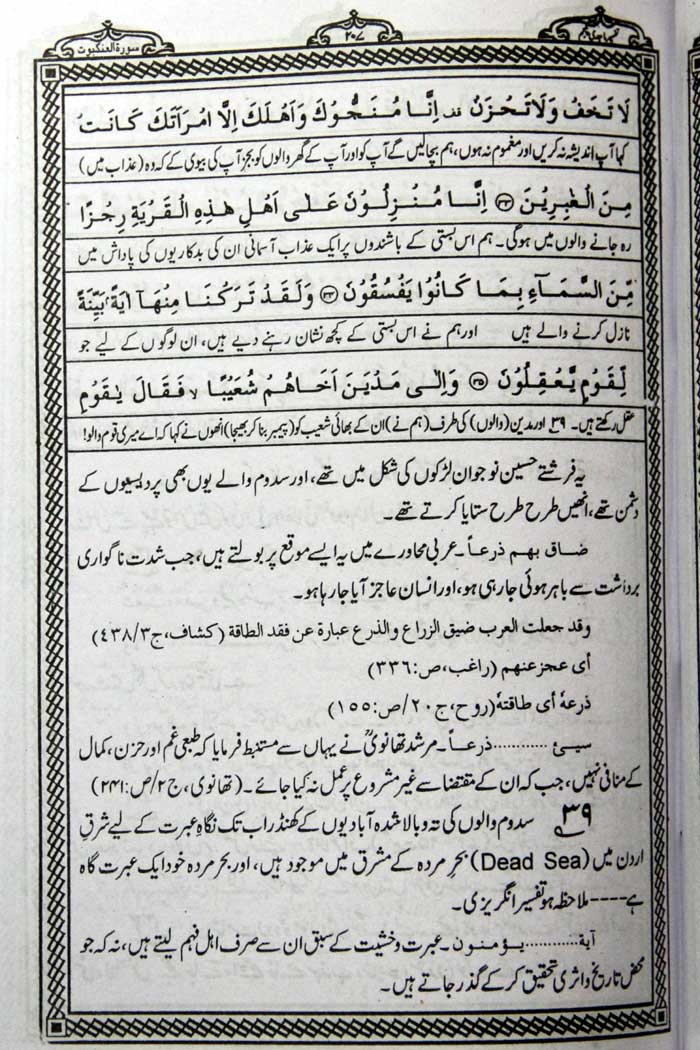 سورة العنکبوت
۲۰۷
لَا تَخَفْ وَلَا تَحْزَنْ قف اِنَّا مُنَجُّوْكَ وَاَهْلَكَ اِلَّا امْرَاَتَكَ كَانَتْ
کہا آپ اندیشہ نہ کریں اور مغموم نہ ہوں، ہم بچالیں گے آپ کو اور آپ کے گھر والوں کو بجز آپ کی بیوی کے کہ وہ (عذاب میں)
مِنَ الْغٰبِرِيْنَ ۳۳ اِنَّا مُنْزِلُوْنَ عَلٰى اَهْلِ هٰذِهِ الْقَرْيَةِ رِجْزًا
رہ جانے والوں میں ہوگی۔ ہم اس بستی کے باشندوں پر ایک عذاب آسمانی ان کی بدکاریوں کی پاداش میں
مِّنَ السَّمَآءِ بِمَا كَانُوْا يَفْسُقُوْنَ ۳۴ وَلَقَدْ تَرَكْنَا مِنْهَآ اٰيَةًۢ بَيِّنَةً
نازل کرنے والے ہیں اور ہم نے اس بستی کے کچھ نشان رہنے دیے ہیں، ان لوگوں کے لیے جو
لِّقَوْمٍ يَّعْقِلُوْنَ ۳۵ وَاِلٰى مَدْيَنَ اَخَاهُمْ شُعَيْبًا لا فَقَالَ يٰقَوْمِ
عقل رکھتے ہیں۔ ۳۹ اور مدین (والوں) کی طرف (ہم نے) ان کے بھائی شعیب کو (پیمبر بنا کر بھیجا) انھوں نے کہا کہ اے میری قوم والو!
یہ فرشتے حسین نوجوان لڑکوں کی شکل میں تھے، اور سدوم والے یوں بھی پردیسیوں کے
دشمن تھے، انھیں طرح طرح ستایا کرتے تھے۔
ضاق بهم ذرعاً۔ عربی محاورے میں یہ ایسے موقع پر بولتے ہیں، جب شدت ناگواری
برداشت سے باہر ہوئی جارہی ہو، اور انسان عاجز آیا جارہا ہو۔
وقد جعلت العرب ضيق الزراع والذرع عبارة عن فقد الطاقة (كشاف، ج۳/۴۳۸)
أى عجز عنهم (راغب، ص:۳۳۶)
ذرعهٔ أى طاقتهٔ (روح، ج۲۰/ص:۱۵۵)
سيئ ........... ذرعاً۔ مرشد تھانویؒ نے یہاں سے مستنبط فرمایا کہ طبعی غم اور حزن، کمال
کے منافی نہیں، جب کہ ان کے مقتضا سے غیر مشروع پر عمل نہ کیا جائے۔ (تھانوی، ج۲/ص:۲۴۱)
۳۹ سدوم والوں کی تہ و بالا شدہ آبادیوں کے کھنڈر اب تک نگاہِ عبرت کے لیے شرقِ
اردن میں (Dead Sea) بحرِ مردہ کے مشرق میں موجود ہیں، اور بحر مردہ خود ایک عبرت گاہ
ہے---- ملاحظہ ہو تفسیر انگریزی۔
آية.......... يؤمنون۔ عبرت و خشیت کے سبق ان سے صرف اہل فہم لیتے ہیں، نہ کہ جو
محض تاریخ و اثری تحقیق کرکے گذر جاتے ہیں۔